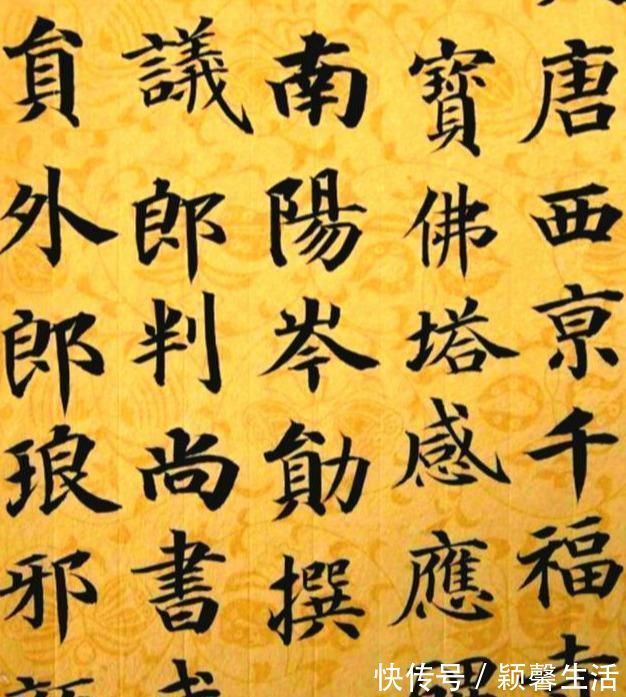 唐西亰千福
寶佛塔感應
南陽岑勛撰
議郎判尚書
貟外郎琅邪
快传号 / 颖馨生活